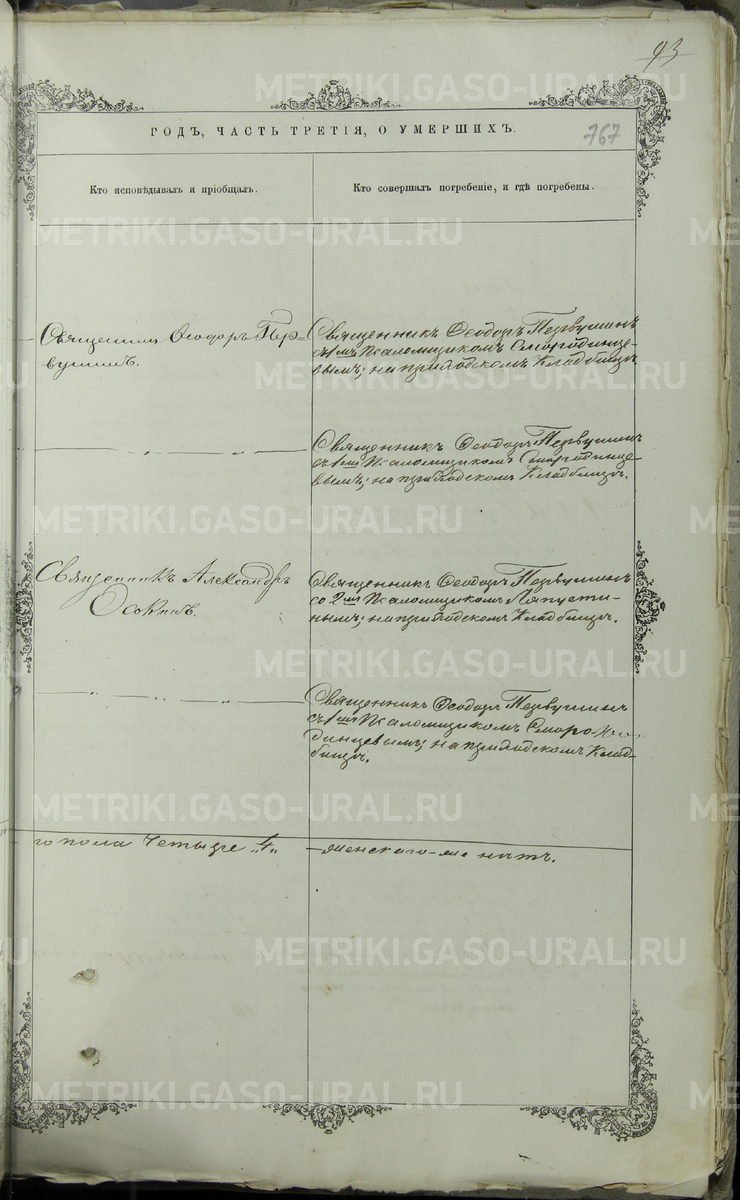 93
767
ГОДЪ, ЧАСТЬ ТРЕТІЯ, О УМЕРШИХЪ.
Кто исповѣдывалъ и пріобщалъ.
Кто совершалъ погребеніе, и гдѣ погребены.
Священникъ Ѳеодоръ Пер-
вушинъ.
Священникъ Ѳеодоръ Первушинъ
съ 1мъ Псаломщикомъ Смородинце-
вымъ; на приходскомъ кладбищѣ.
— „ — „ —
Священникъ Ѳеодоръ Первушинъ
съ 1мъ Псаломщикомъ Смородинце-
вымъ; на приходскомъ кладбищѣ.
Священникъ Александръ
Осокинъ.
Священникъ Ѳеодоръ Первушинъ
со 2мъ Псаломщикомъ Ляпусти-
нымъ; на приходскомъ кладбищѣ.
— „ — „ —
Священникъ Ѳеодоръ Первушинъ
съ 1мъ Псаломщикомъ Сморо-
динцевымъ; на приходскомъ клад-
бищѣ.
го пола четыре „4„
—женскаго— нѣтъ.
METRIKI.GASO-URAL.RU